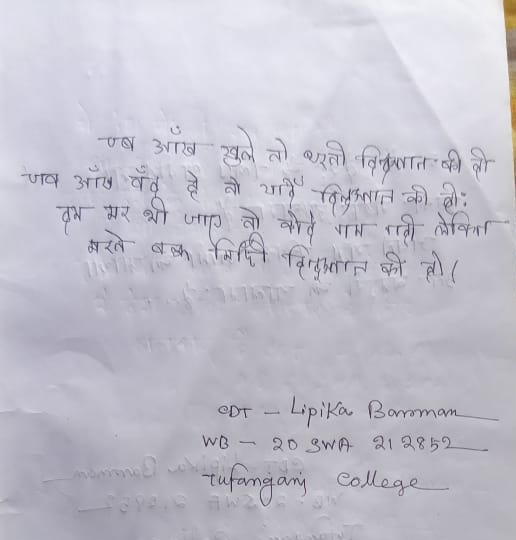 जब आँख खुले तो धरती हिन्दुस्तान की हो
जब आँख बँद हो तो यादेँ हिन्दुस्तान की हो:
हम मर भी जाए तो कोई गम नही लेकिन
मरते वक्त मिट्टी हिन्दुस्तान की हो।
CDT - Lipika Barman
WB - 20 SWA 212852
Tufanganj College